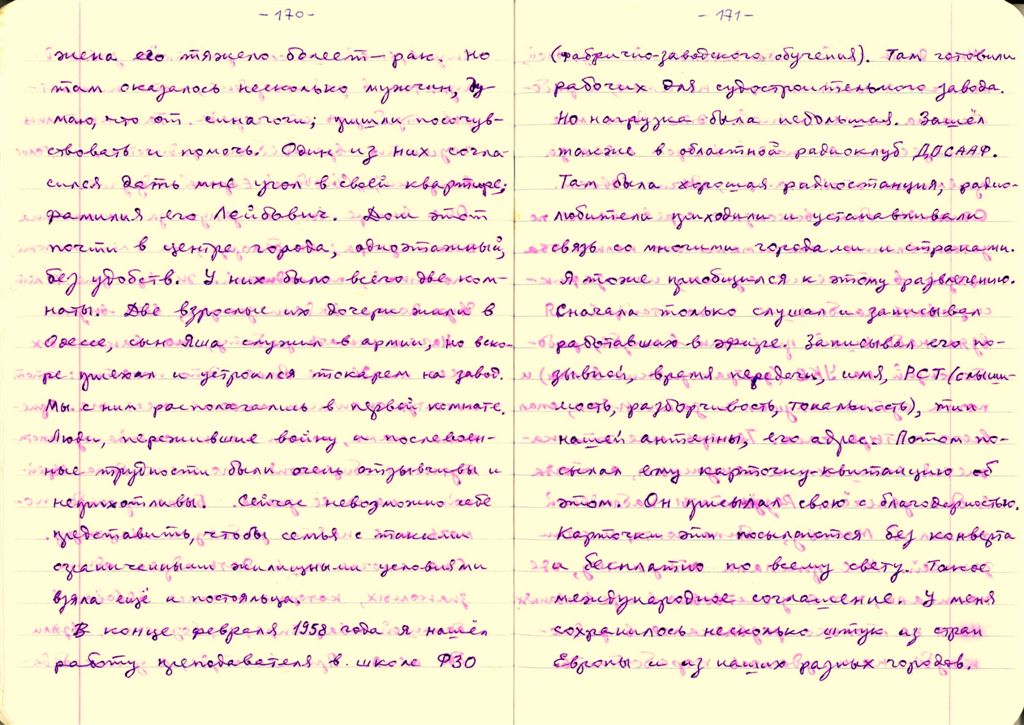 -170-
жена его тяжело болеет — рак. Но
там оказалось несколько мужчин, ду-
маю, что от синагоги; пришли посочув-
ствовать и помочь. Один из них согла-
сился дать мне угол в своей квартире;
фамилия его Лейбович. Дом этот
почти в центре города, одноэтажный,
без удобств. У них было всего две ком-
наты. Две взрослые их дочери жили в
Одессе, сын Яша служил в армии, но вско-
ре приехал и устроился токарем на завод.
Мы с ним располагались в первой комнате.
Люди, пережившие войну и послевоен-
ные трудности были очень отзывчивы и
неприхотливы. Сейчас невозможно себе
представить, чтобы семья с такими
ограниченными жилищными условиями
взяла ещё и постояльца.
В конце февраля 1958 года я нашёл
работу преподавателя в школе ФЗО
-171-
(фабрично-заводского обучения). Там готовили
рабочих для судостроительного завода.
Но нагрузка была небольшая. Зашёл
также в областной радиоклуб ДОСААФ.
Там была хорошая радиостанция; радио-
любители приходили и устанавливали
связь со многими городами и странами.
Я тоже приобщился к этому развлечению.
Сначала только слушал и записывал
работавших в эфире. Записывал его по-
зывной, время передачи, имя, РСТ (слыши-
мость, разборчивость, тональность), тип
нашей антенны, его адрес. Потом по-
сылал ему карточку-квитанцию об
этом. Он присылал свою с благодарностью.
Карточки эти посылаются без конверта
и бесплатно по всему свету. Такое
международное соглашение. У меня
сохранилось несколько штук из стран
Европы и из наших разных городов.